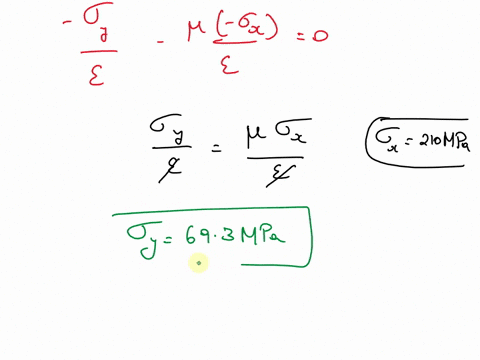 -σ_y/ε - μ(-σ_x)/ε = 0
σ_y/ε = μ σ_x/ε
σ_x = 210 MPa
σ_y = 69.3 MPa